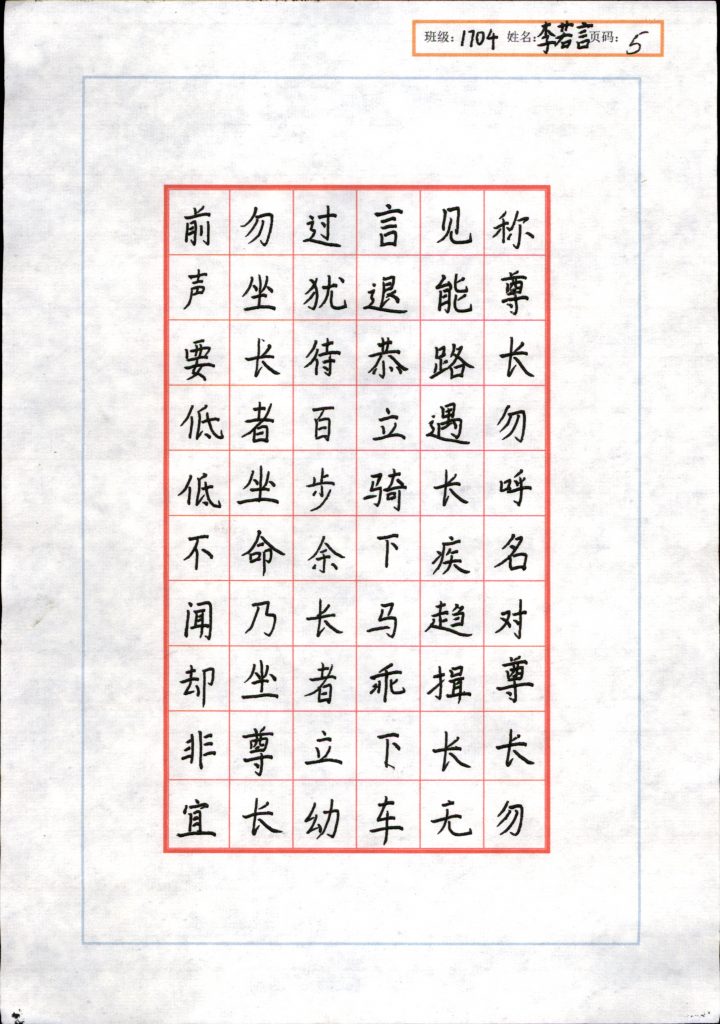 班级：1704 姓名：李若言 页码：5
称尊长勿呼名对尊长勿
见能路遇长疾趋揖长无
言退恭立骑下马乖下车
过犹待百步余长者立幼
勿坐长者坐命乃坐尊长
前声要低低不闻却非宜